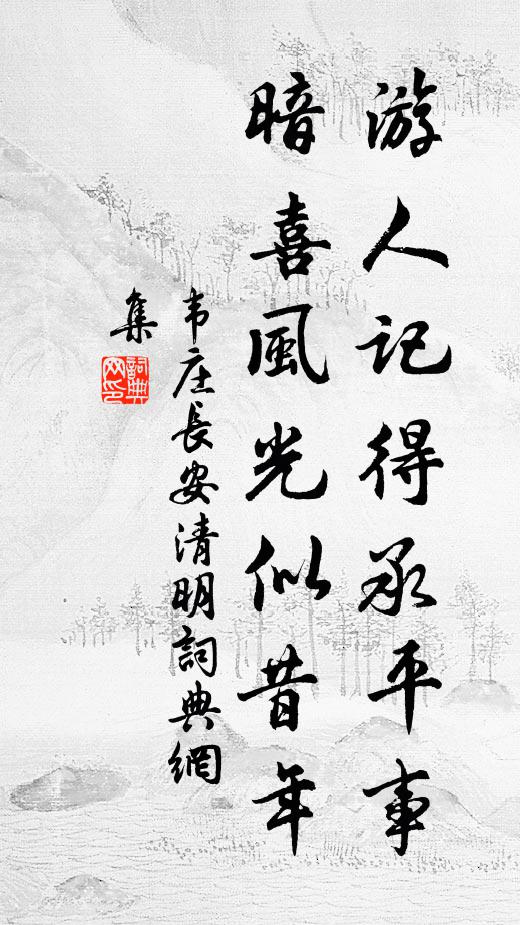 游人记得承平事
暗喜風光似昔年
韦庄長安清明詞典網
集
詞典网印